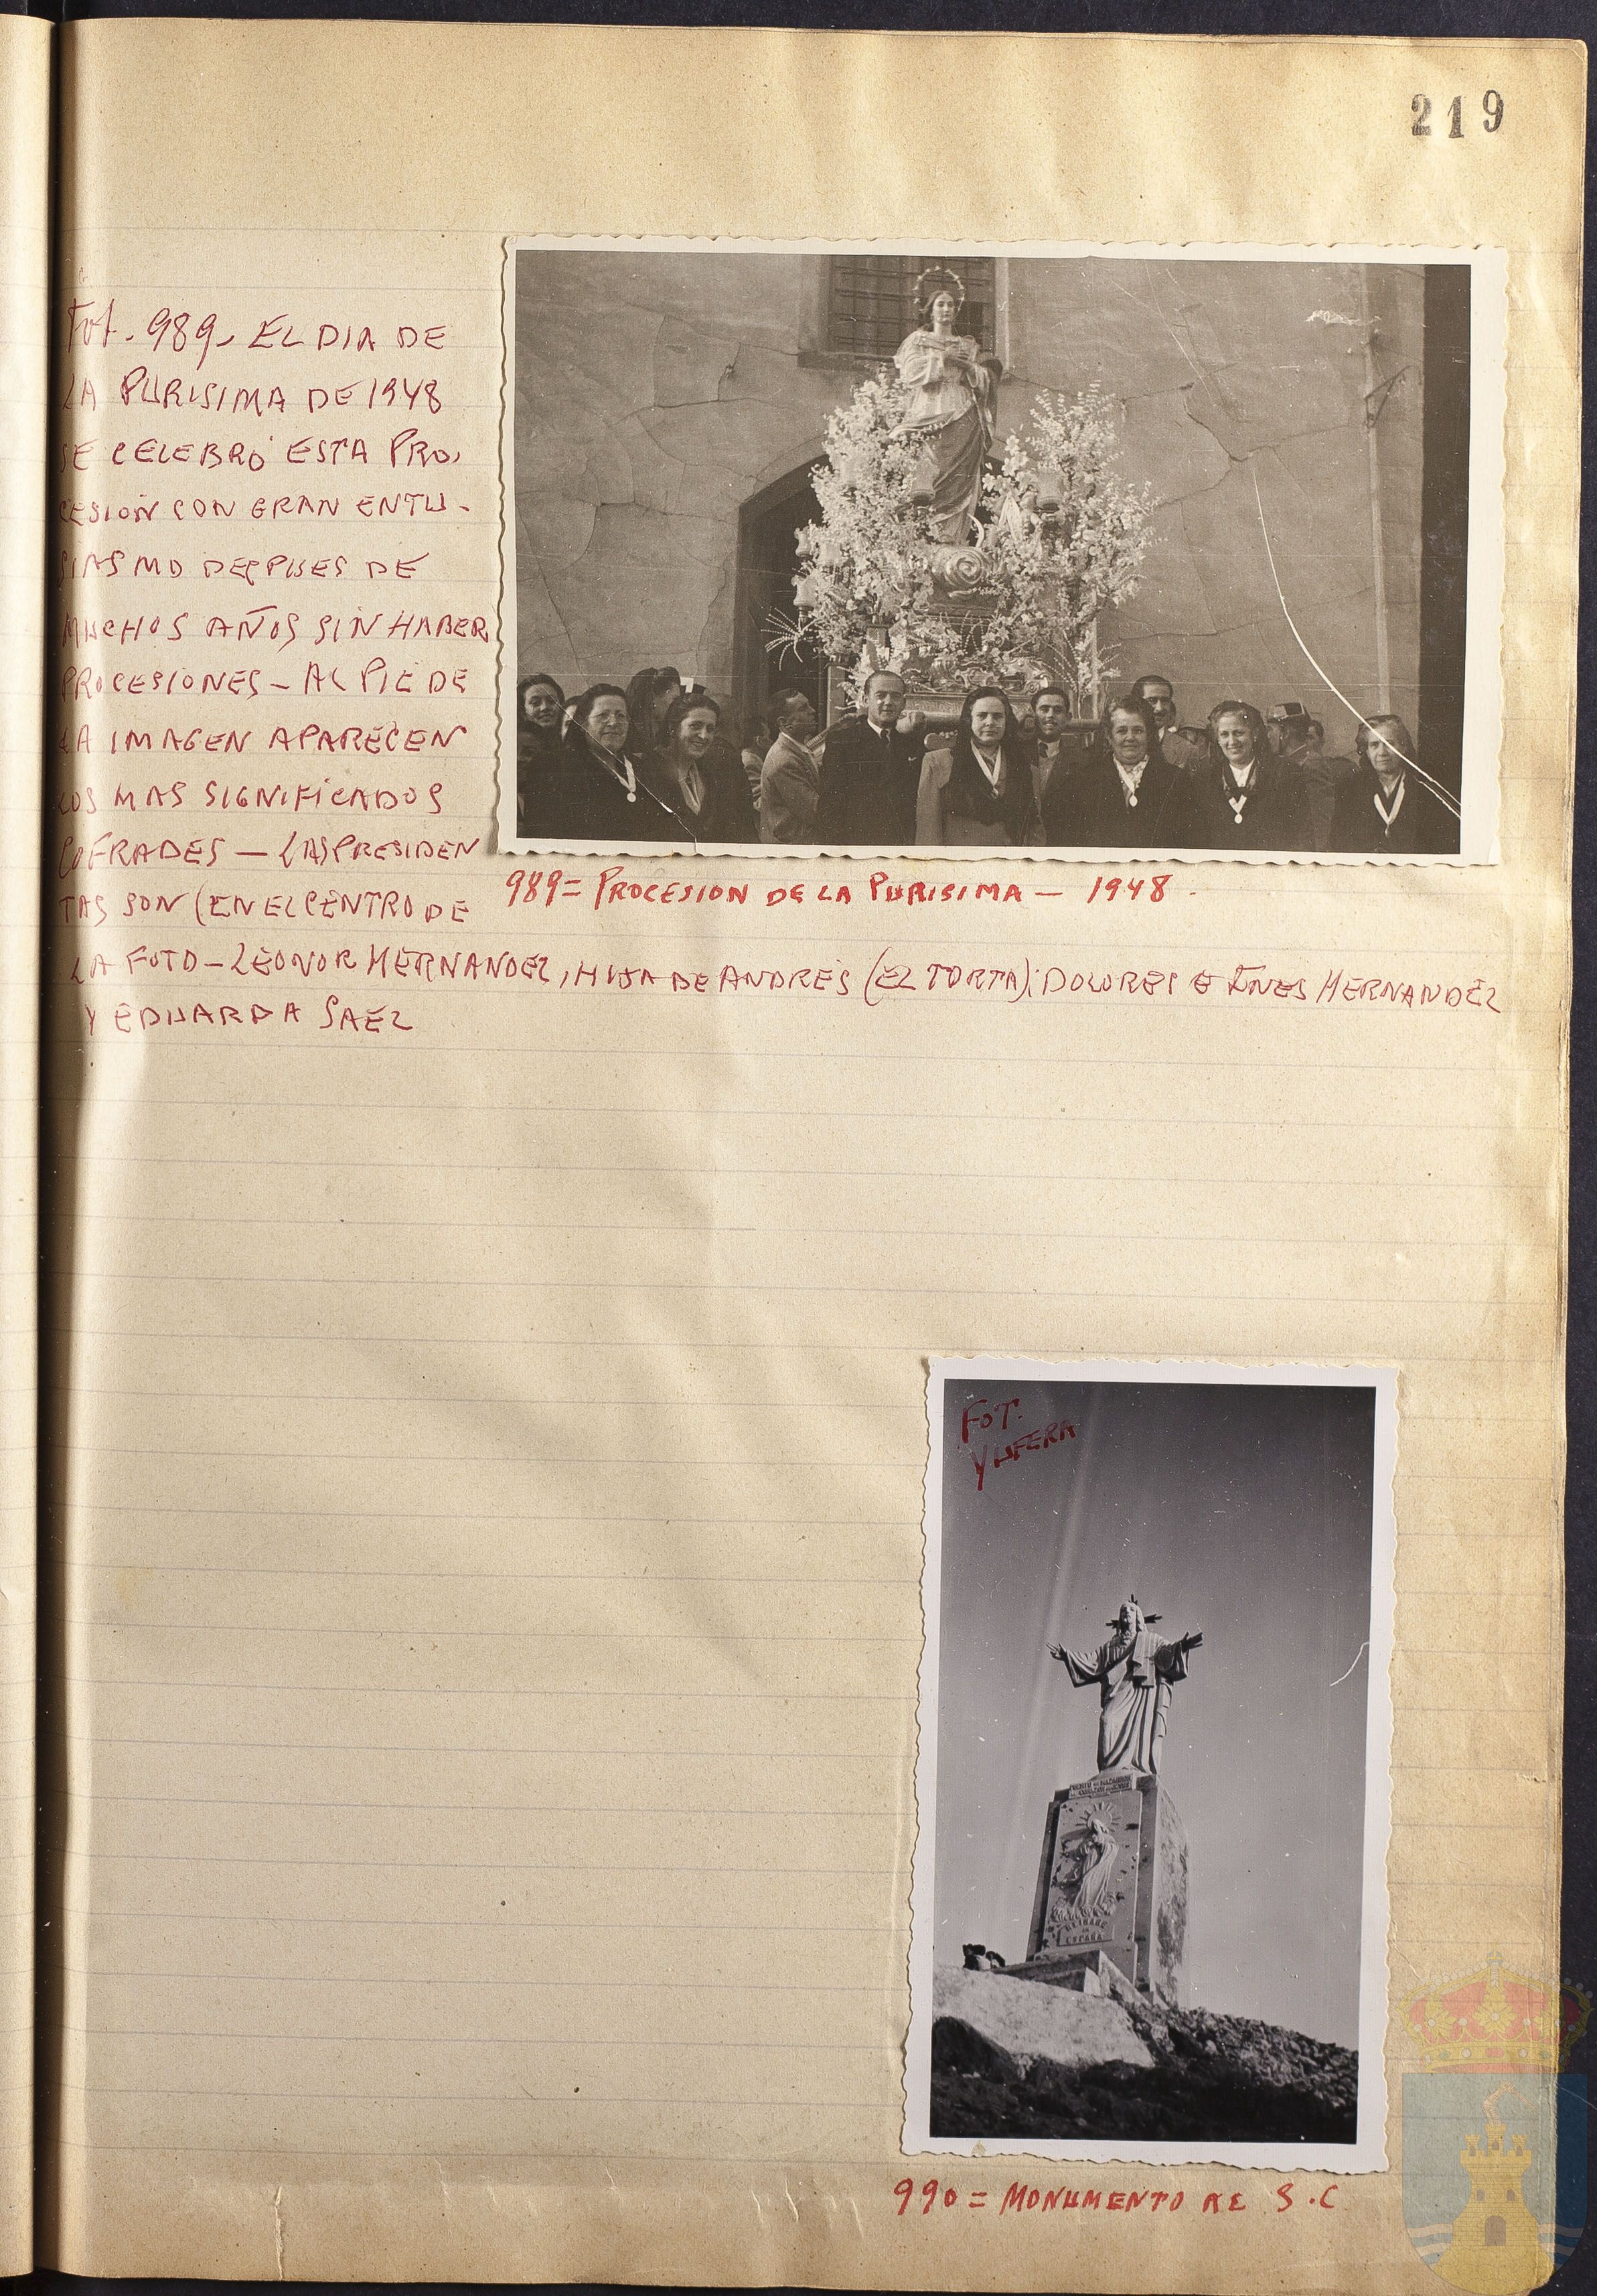 219
Fot. 989- EL DIA DE
LA PURISIMA DE 1948
SE CELEBRÓ ESTA PRO-
CESION CON GRAN ENTU-
SIASMO DESPUES DE
MUCHOS AÑOS SIN HABER
PROCESIONES - AL PIE DE
LA IMAGEN APARECEN
LOS MAS SIGNIFICADOS
COFRADES - LAS PRESIDEN
TAS SON (EN EL CENTRO DE
LA FOTO - LEONOR HERNANDEZ, HIJA DE ANDRES (EL TORTA); DOLORES E INES HERNANDEZ
Y EDUARDA SAEZ
989 = PROCESION DE LA PURISIMA - 1948.
FOT.
YUFERA
REINARE
EN
ESPAÑA
990 = MONUMENTO AL S.C